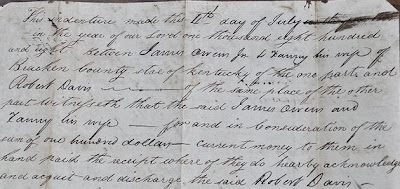 This Indenture made this 11th day of July
in the year of our Lord one thousand eight hundred
and eight between James Owens Jr & Fanny his wife of
Bracken County state of Kentucky of the one part and
Robert Davis of the same place of the other
part witnesseth that the said James Owens and
Fanny his wife for and in Consideration of the
sum of one hundred dollars current money to them in
hand paid the receipt where of they do hearby acknowledge
and acquit and discharge the said Robert Davis